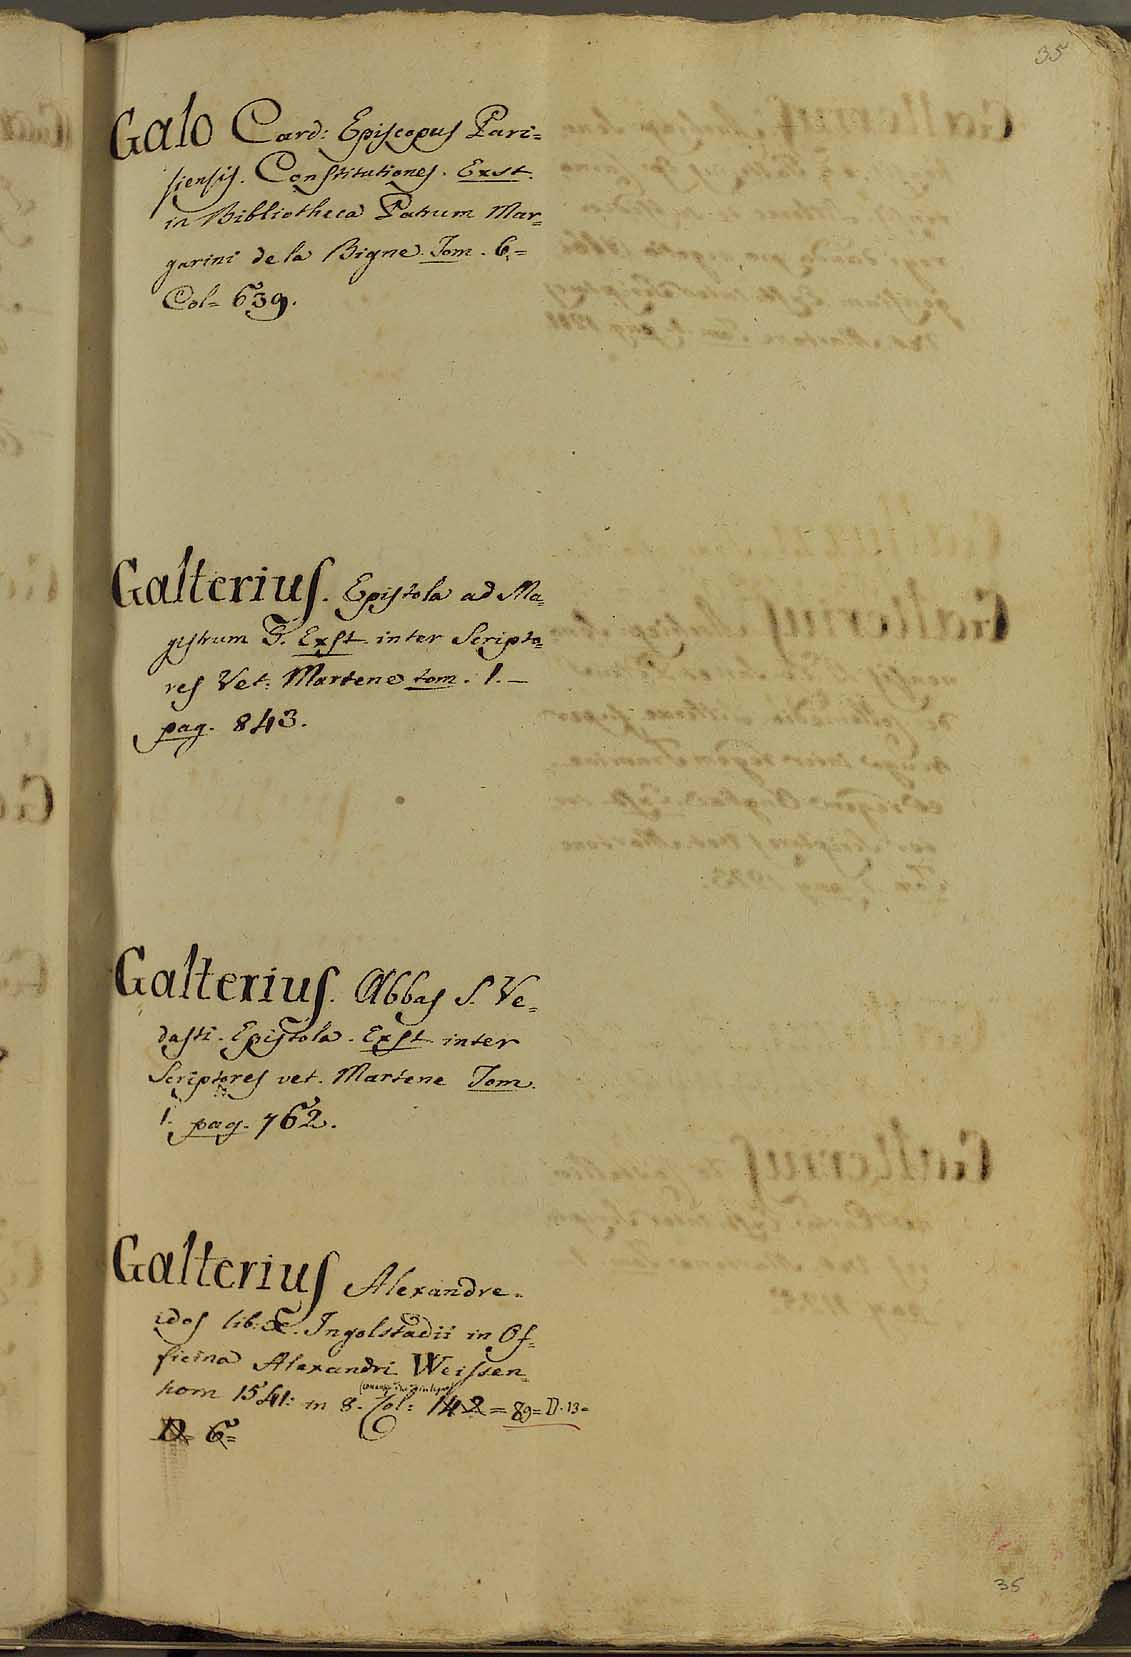 35
Galo Card: Episcopus Pari=
siensis. Constitutiones. Exst.
in Bibliotheca Patrum Mar=
garini de la Bigne. Tom. 6.=
Col= 639.
Galterius. Epistola ad Ma=
gistrum G. Exst inter Scripto=
res Vet: Martene tom. 1.—
pag. 843.
Galterius. Abbas S. Ve=
dasti. Epistola. Exst inter
Scriptores vet. Martene Tom.
1. pag. 762.
Galterius Alexandre=
idos lib: X. Ingolstadii in Of=
ficina Alexandri Weissen=
horn 1541: in 8. Col: 142 = 89= D. 13=
D. 6=
35